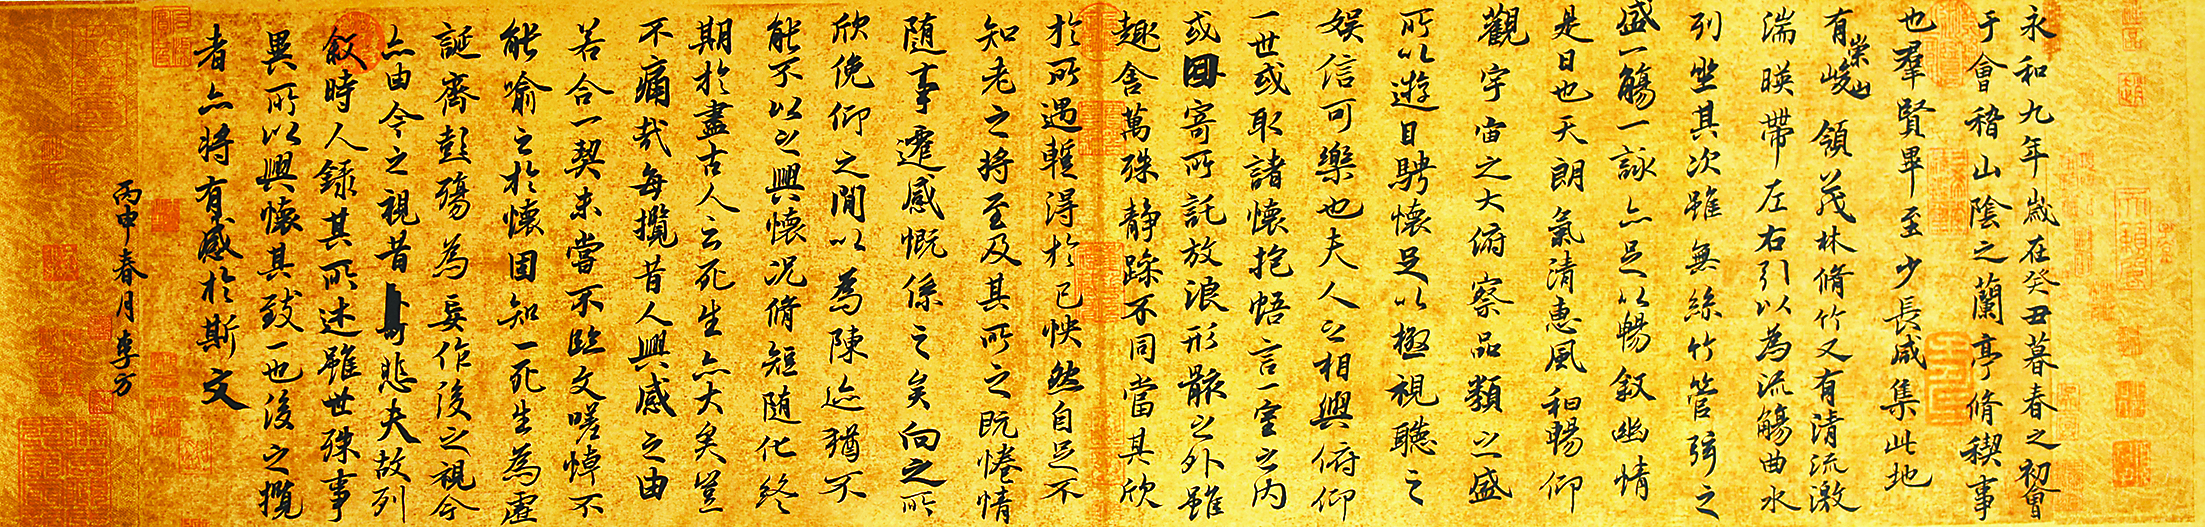 永和九年歲在癸丑暮春之初會
于會稽山陰之蘭亭脩稧事
也羣賢畢至少長咸集此地
有崇山峻領茂林脩竹又有清流激
湍暎帶左右引以為流觴曲水
列坐其次雖無絲竹管弦之
盛一觴一詠亦足以暢敘幽情
是日也天朗氣清惠風和暢仰
觀宇宙之大俯察品類之盛
所以遊目騁懷足以極視聽之
娛信可樂也夫人之相與俯仰
一世或取諸懷抱悟言一室之內
或因寄所託放浪形骸之外雖
趣舍萬殊靜躁不同當其欣
於所遇輊得於己怏然自足不
知老之將至及其所之既惓情
隨事遷感慨係之矣向之所
欣俛仰之閒以為陳迹猶不
能不以之興懷況脩短隨化終
期於盡古人云死生亦大矣豈
不痛哉每攬昔人興感之由
若合一契未嘗不臨文嗟悼不
能喻之於懷固知一死生為虛
誕齊彭殤為妄作後之視今
亦由今之視昔悲夫故列
敘時人錄其所述雖世殊事
異所以興懷其致一也後之攬
者亦將有感於斯文
丙申春月李方